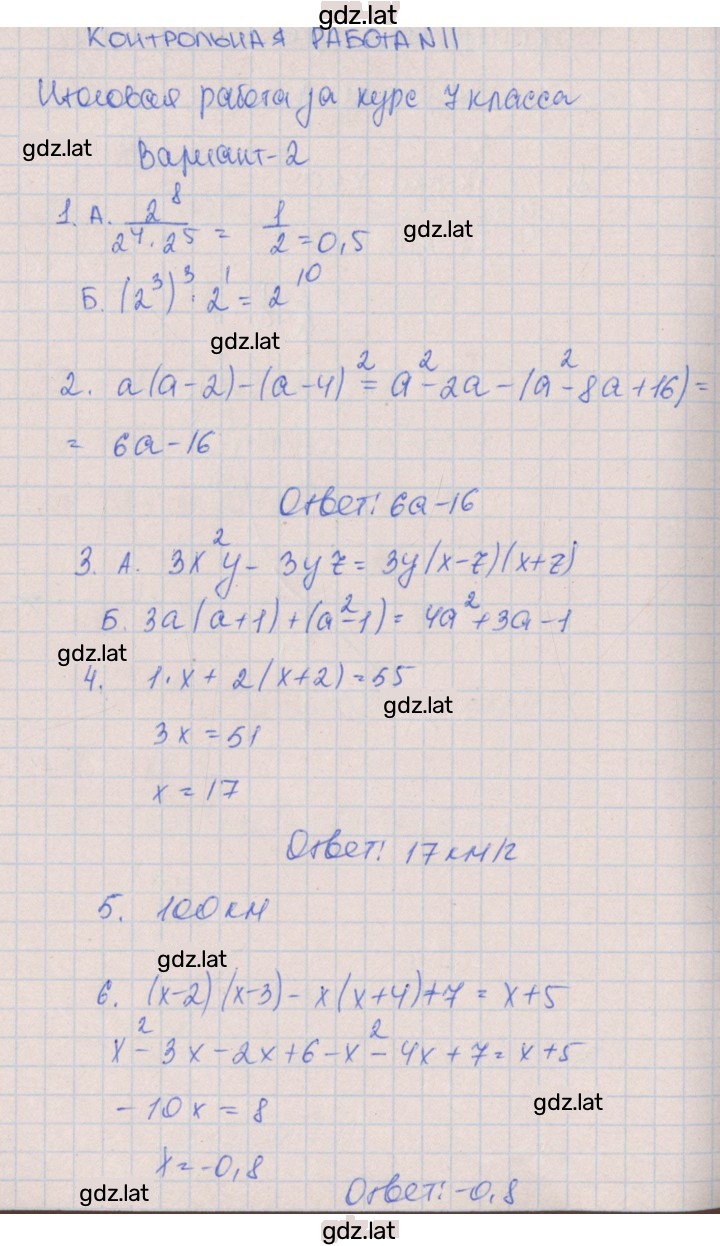 gdz.lat
КОНТРОЛЬНАЯ РАБОТА N11
Итоговая работа за курс 7 класса
gdz.lat
Вариант-2
1. А. 2^8 / (2^4 · 2^5) = 1/2 = 0,5
gdz.lat
Б. (2^3)^3 · 2^1 = 2^10
gdz.lat
2. a(a-2)-(a-4)^2 = a^2-2a-(a^2-8a+16)=
= 6a-16
Ответ: 6a-16
3. А. 3x^2y - 3yz = 3y(x-z)(x+z)
Б. 3a(a+1)+(a^2-1)= 4a^2+3a-1
gdz.lat
4. 1·x + 2(x+2)=55
gdz.lat
3x = 51
x = 17
Ответ: 17 км/г
5. 100 км
gdz.lat
6. (x-2)(x-3)-x(x+4)+7 = x+5
x^2-3x-2x+6-x^2-4x+7= x+5
-10x = 8
gdz.lat
x=-0,8
gdz.lat
Ответ: -0,8
gdz.lat